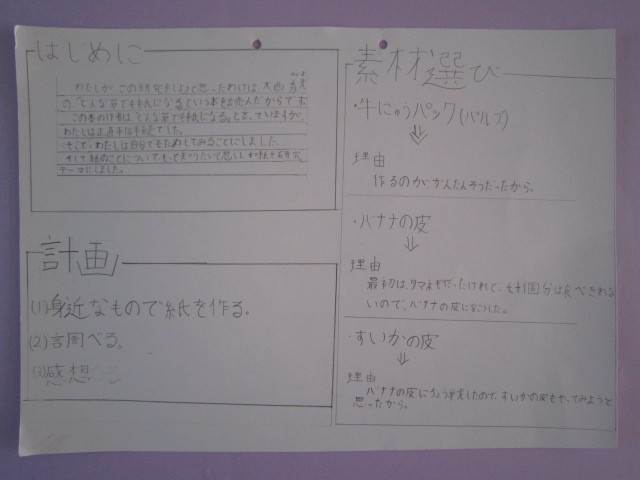 はじめに
わたしが、この研究をしようと思ったわけは、大
の、「どんな草でも紙になる」という本を読んだからです。
この本の作者は「どんな草でも紙になる」と言っていますが、
わたしは正直半信半疑でした。
そこで、わたしは自分でもためしてみることにしました。
そして紙のことについて、もっと知りたいと思い、
テーマにしました。
計画
(1)身近なもので紙を作る。
(2)調べる。
(3)感想
素材選び
・牛にゅうパック(パルプ)
⇓
理由
作るのが、かんたんそうだったから。
・バナナの皮
⇓
理由
最初は、タマネギだったけれど、七十個分は食べきれな
いので、バナナの皮にしました。
・すいかの皮
⇓
理由
バナナの皮にちょう戦したので、すいかの皮もやってみようと
思ったから。